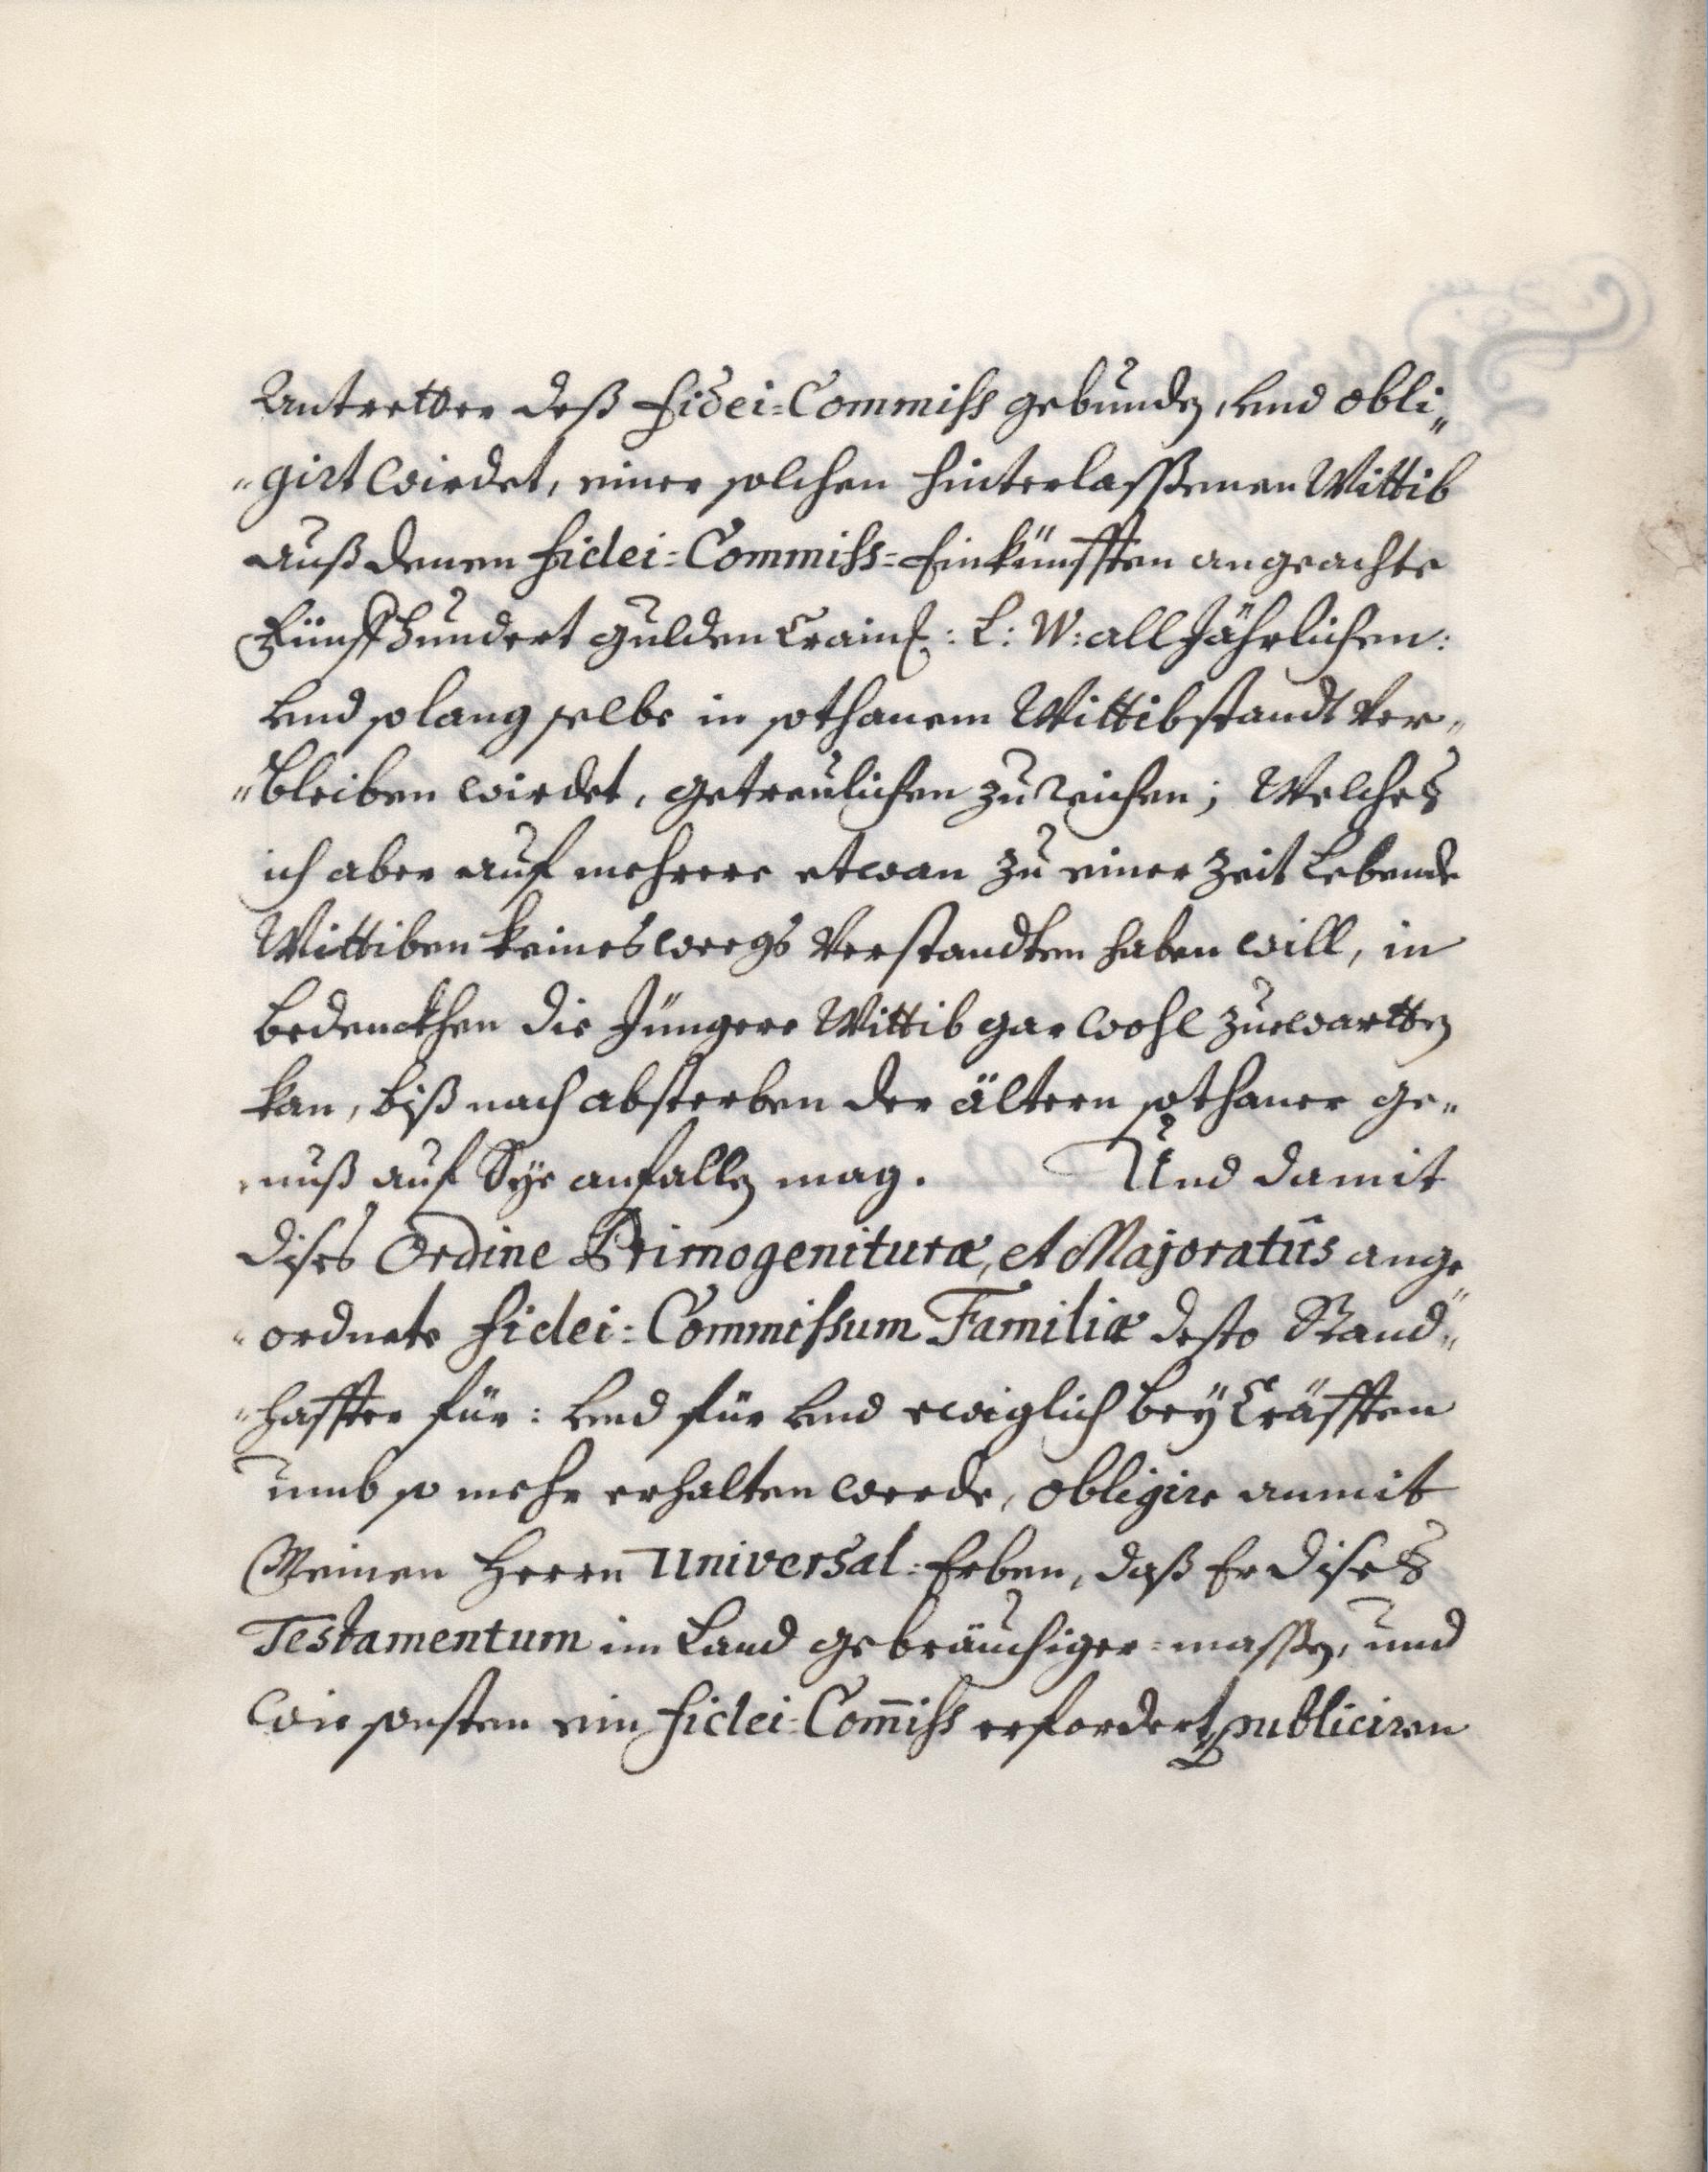 Antretter deß Fidei=Commiss gebunden, und obli„
„girt wirdet, einer solchen hinterlassenen Wittib
auß denen Fidei=Commiss=Einkünfften angeachte
Fünffhundert gulden Crain: L: W: all Jährlichen:
und so lang selbe in sothanem Wittibstandt ver„
„bleiben wirdet, getreulichen zu reichen; Welches
ich aber auf mehrere etwan zu einer Zeit Lebende
Wittiben keines weegs verstandten haben will, in
bedenckhen die Jüngere Wittib gar wohl zuewartten
kan, biß nach absterben der ältern sothaner ge„
„nuß auf Sye anfallen mag. Und damit
dises Ordine Primogenituræ, et Majoratûs ange„
„ordnete Fidei=Commissum Familiæ desto Stand„
„haffter für: und für und ewiglich bey Cräfften
umb so mehr erhalten werde, obligire anmit
Meinen Herrn Universal=Erben, daß Er dises
Testamentum im Land gebräuchiger=massen, und
wie sonsten ein Fidei=Com̄iss erfordert, publiciren